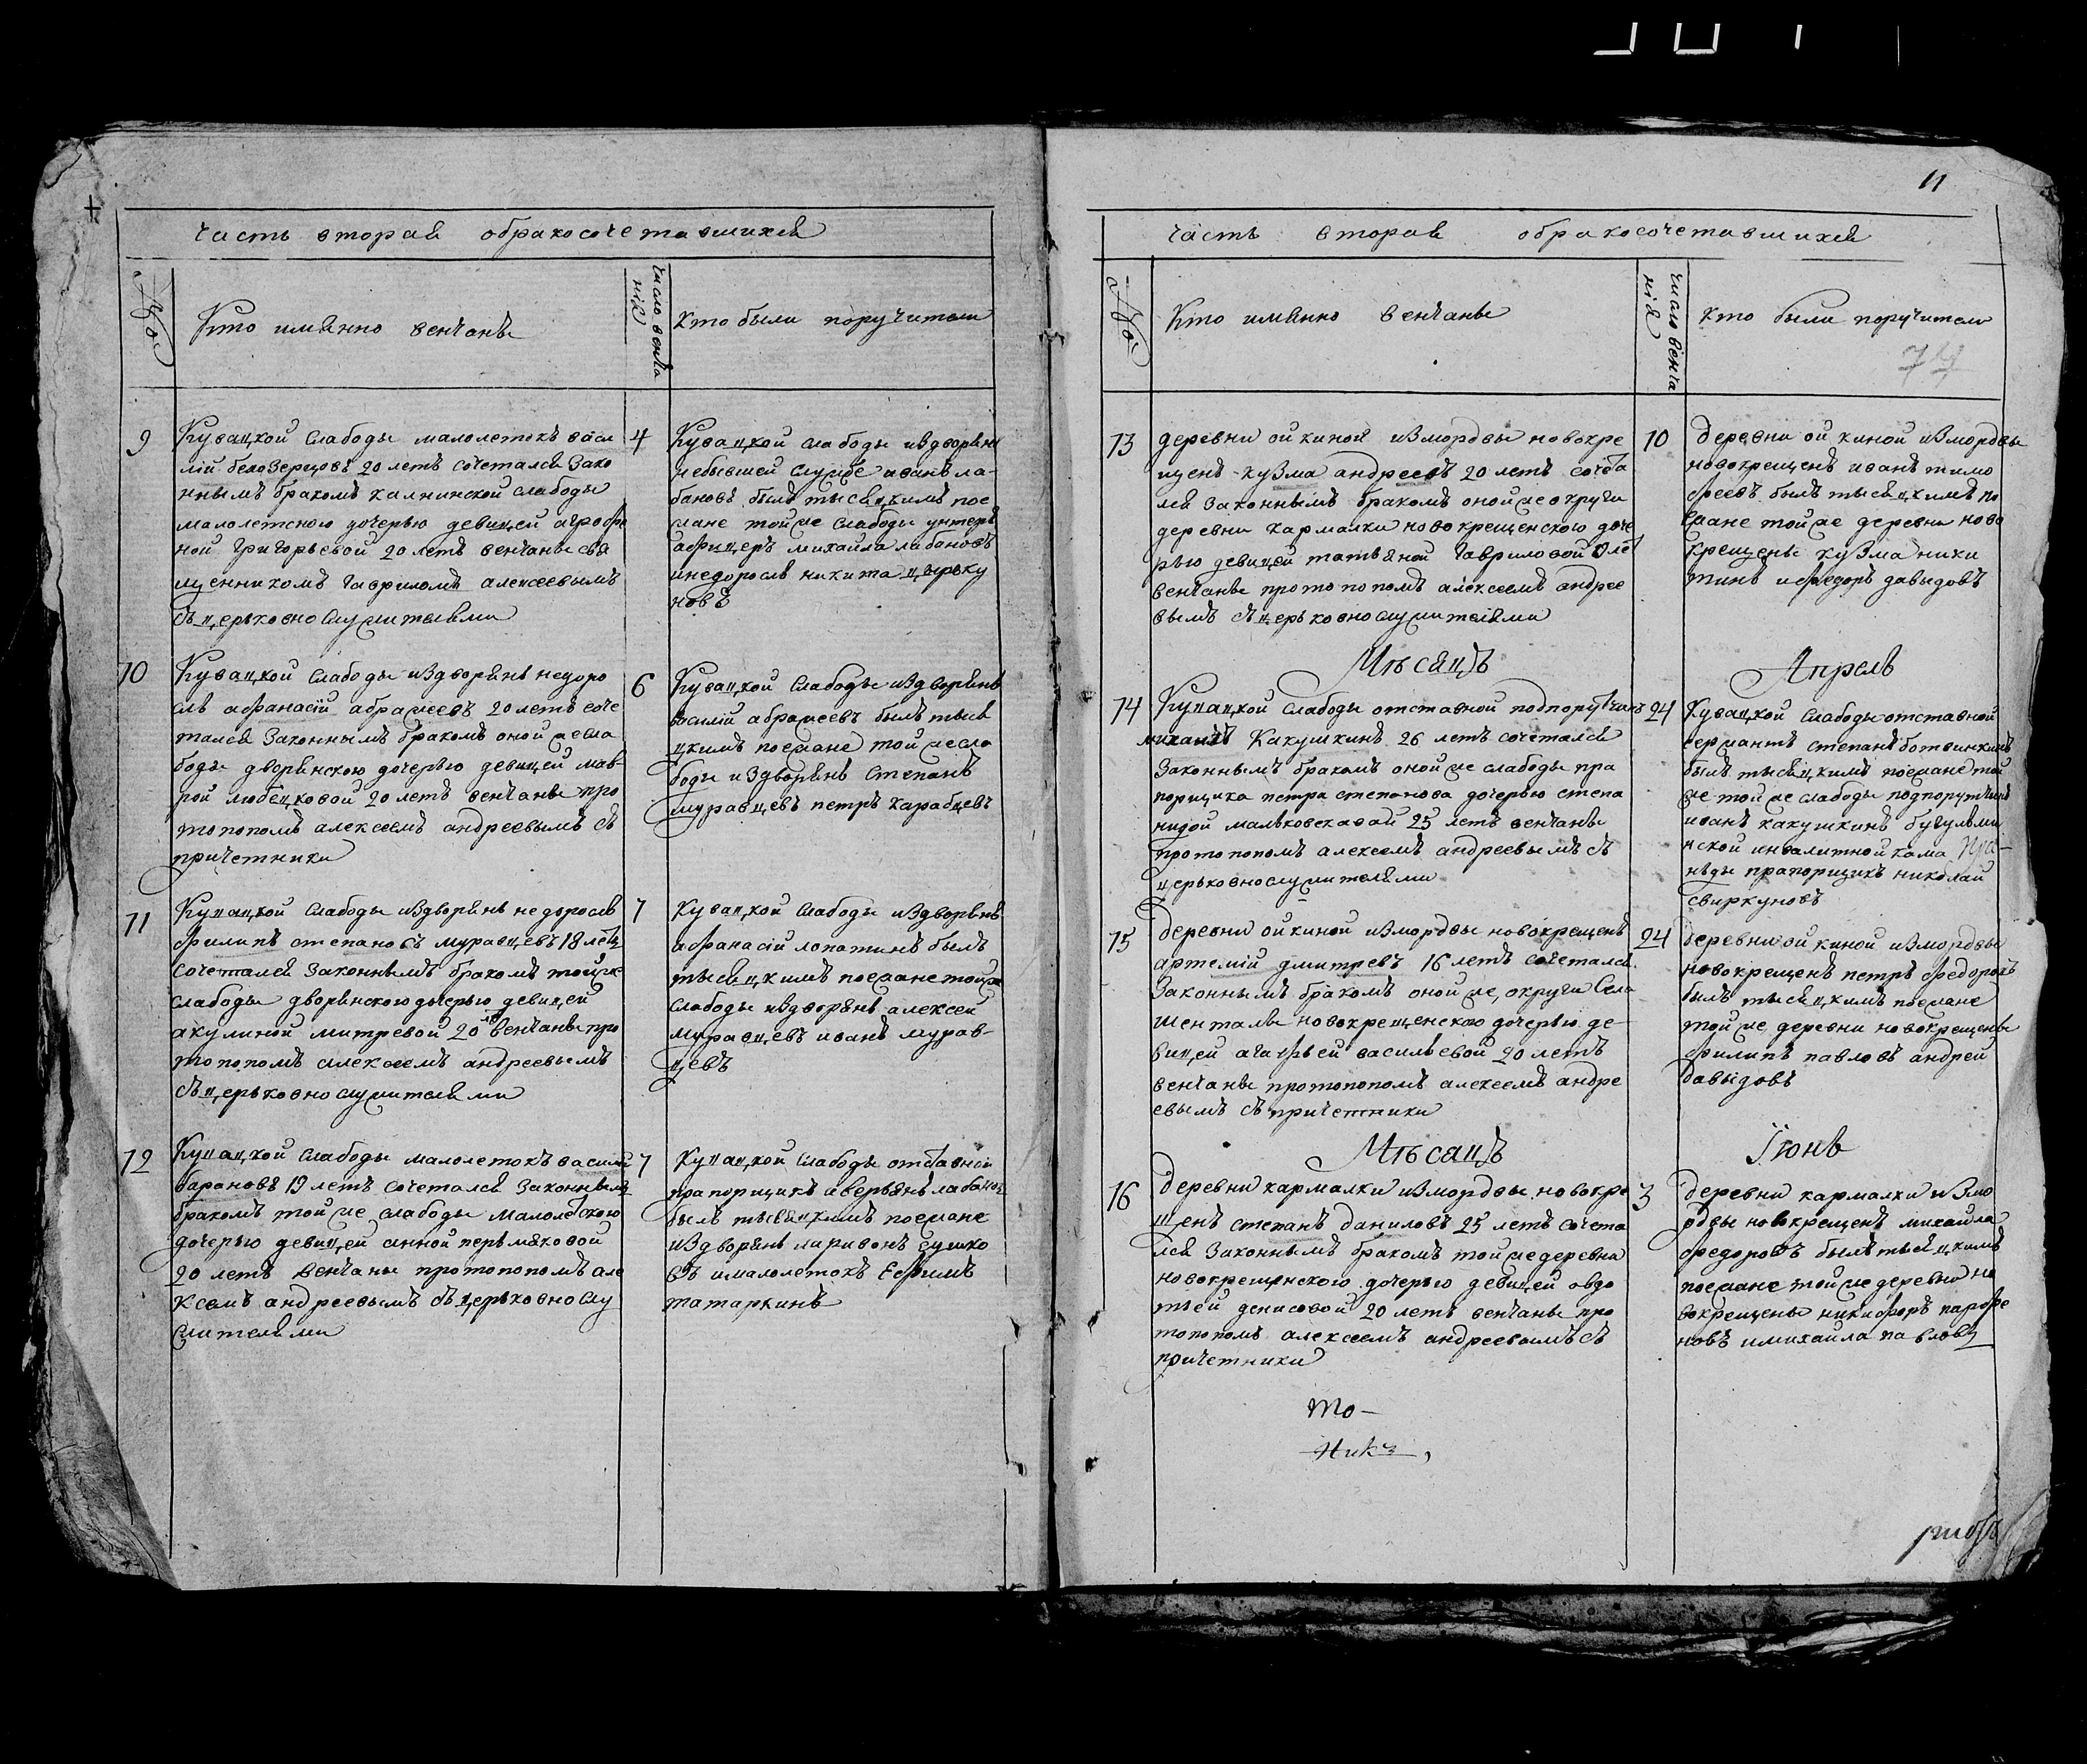 часть вторая обракосочетавшихся
№
Кто имянно венчаны
число венча
нія
кто были поручители
9
Кувацкой слабоды малолетокъ васи
лій белозерцовъ 20 летъ сочетался зако
ннымъ бракомъ калнинской слабоды
малолетскою дочерью девицей агрофе
ной григорьевой 20 летъ венчаны свя
щенникомъ гавриломъ алексеевымъ
съ церьковнослужительми
4
Кувацкой слабоды издворянъ
небывшей службе иванъ ла-
бановъ былъ тысяцкимъ пое
жане тойже слабоды унтеръ
афицеръ михайла лабановъ
инедоросль никита цырку
новъ
10
Кувацкой слабоды издворянъ недоро
сль афанасій абрамеевъ 20 летъ соче
тался законнымъ бракомъ оной же сла
боды дворянскою дочерью девицей мав-
рой любецковой 20 летъ венчаны про
топопомъ алексеемъ андреевымъ съ
причетники
6
Кувацкой слабоды издворянъ
василій абрамеевъ былъ тыся
цкимъ поежане той же сла
боды издворянъ степанъ
муравцевъ петръ карабцевъ
11
Кувацкой слабоды издворянъ недоросль
филипъ степановъ муравцевъ 18 летъ
сочетался законнымъ бракомъ тойже
слабоды дворянскою дочерью девицей
акулиной митревой 20 ле венчаны про
топопомъ алексеемъ андреевымъ
съ церьковнослужительми
7
Кувацкой слабоды издворянъ
афанасій лопатинъ былъ
тысяцкимъ поежане тойже
слабоды издворянъ алексеи
муравцевъ иванъ мурав-
цевъ
12
Кувацкой слабоды малолетокъ василій
барановъ 19 летъ сочетался законнымъ
бракомъ той же слабоды малолетскою
дочерью девицей анной перьмяковой
20 летъ венчаны протопопомъ але
ксеемъ андреевымъ съ церьковнослу
жительми
7
Кувацкой слабоды отставной
прапорщикъ аверьянъ лабановъ
былъ тысяцкимъ поежане
издворянъ ларивонъ сушко
въ ималолетокъ Ефимъ
татаркинъ
11
часть вторая обракосочетавшихся
№
Кто имянно венчаны
число венча
нія
кто были поручители
74
13
деревни ойкиной измордвы новокре
щенъ кузма андреевъ 20 летъ сочета
лся законнымъ бракомъ оной же округи
деревни кармалки новокрещенскою доче
рью девицей татьяной гавриловой летъ
венчаны протопопомъ алексеемъ андрее
вымъ съ церьковнослужителями
10
деревни ойкиной измордвы
новокрещенъ иванъ тимо
феевъ былъ тысяцкимъ по
ежане той же деревни ново
крещены кузма ники
тинъ ифедоръ давыдовъ
Мѣсяцъ
Апрель
14
Кувацкой слабоды отставной подпорутчикъ
михаилъ Какушкинъ 26 летъ сочетался
законнымъ бракомъ оной же слабоды пра
порщика петра степанова дочерью степа
нидой мальковскавай 25 летъ венчаны
протопопомъ алексеемъ андреевымъ съ
церьковнослужителями
24
Кувацкой слабоды отставной
сержантъ степанъ ботвинкинъ
былъ тысяцкимъ поежане той
же той же слабоды подпорутчикъ
иванъ какушкинъ бугульми
нской инвалитной кама
нды прапорщикъ николай
свиркуновъ
15
деревни ойкиной измордвы новокрещенъ
артемій дмитревъ 16 летъ сочетался
законнымъ бракомъ оной же округи села
шенталы новокрещенскою дочерью де-
вицей агафьей васильевой 20 летъ
венчаны протопопомъ алексеемъ андре
евымъ съ причетники
24
деревни ойкиной измордвы
новокрещенъ петръ федоровъ
былъ тысяцкимъ поежане
той же деревни новокрещены
филипъ павловъ андрей
давыдовъ
Мѣсяцъ
Іюнь
16
деревни кармалки измордвы новокре
щенъ степанъ даниловъ 25 летъ сочета
лся законнымъ бракомъ той же деревни
новокрещенскою дочерью девицей овдо
тьей денисовой 20 летъ венчаны про
топопомъ алексеемъ андреевымъ съ
причетники
3
деревни кармалки измо
рдвы новокрещенъ михайла
федоровъ былъ тысяцкимъ
поежане той же деревни но
вокрещены никифоръ парфе
новъ имихайла павловъ
то-